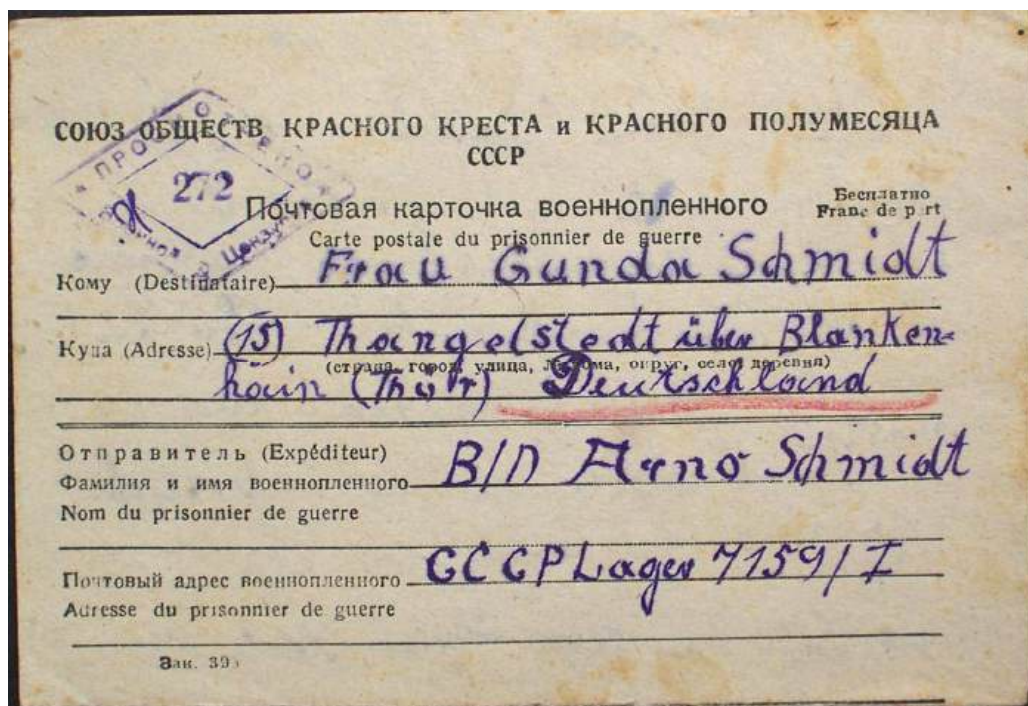 СОЮЗ ОБЩЕСТВ КРАСНОГО КРЕСТА и КРАСНОГО ПОЛУМЕСЯЦА
СССР
ПРОСМОТРЕНО
272
Военной Цензурой
Почтовая карточка военнопленного
Бесплатно
Franc de p rt
Carte postale du prisonnier de guerre
Кому (Destinataire) Frau Gunda Schmidt
Куда (Adresse) (15) Thangelstedt über Blanken-
(страна, город, улица, № дома, округ, село, деревня)
hain (Thür) Deutschland
Отправитель (Expéditeur)
Фамилия и имя военнопленного В/П Arno Schmidt
Nom du prisonnier de guerre
Почтовый адрес военнопленного CCCP Lager 7159/I
Adresse du prisonnier de guerre
Зак.